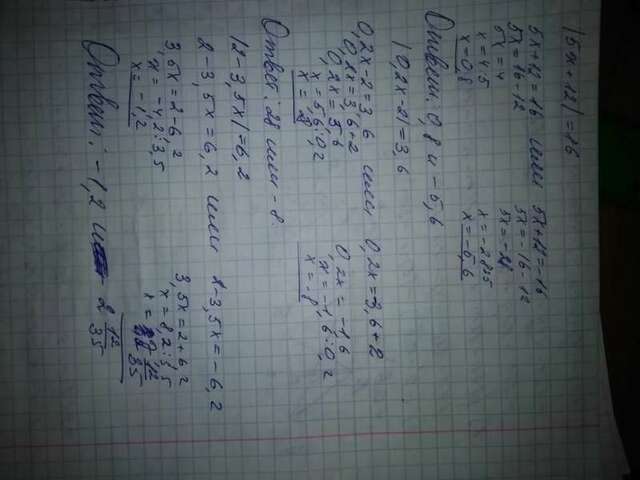 |5x+12|=16
5x+12=16 или 5x+12=-16
5x=16-12 5x=-16-12
5x=4 5x=-28
x=4:5 x=-28:5
x=0,8 x=-5,6
Ответ: 0,8 и -5,6
|0,2x-2|=3,6
0,2x-2=3,6 или 0,2x=-3,6+2
0,2x=3,6+2 0,2x=-1,6
0,2x=5,6 x=-1,6:0,2
x=5,6:0,2 x=-8
x=28
Ответ: 28 или -8.
|2-3,5x|=6,2
2-3,5x=6,2 или 2-3,5x=-6,2
3,5x=2-6,2 3,5x=2+6,2
x=-4,2:3,5 x=8,2:3,5
x=-1,2 x= 2 12/35
Ответ: -1,2 и 2 12/35